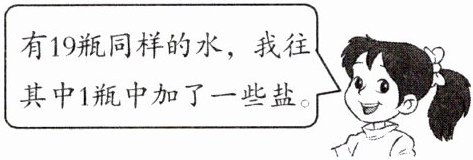 有19瓶同样的水，我往
其中1瓶中加了一些盐。